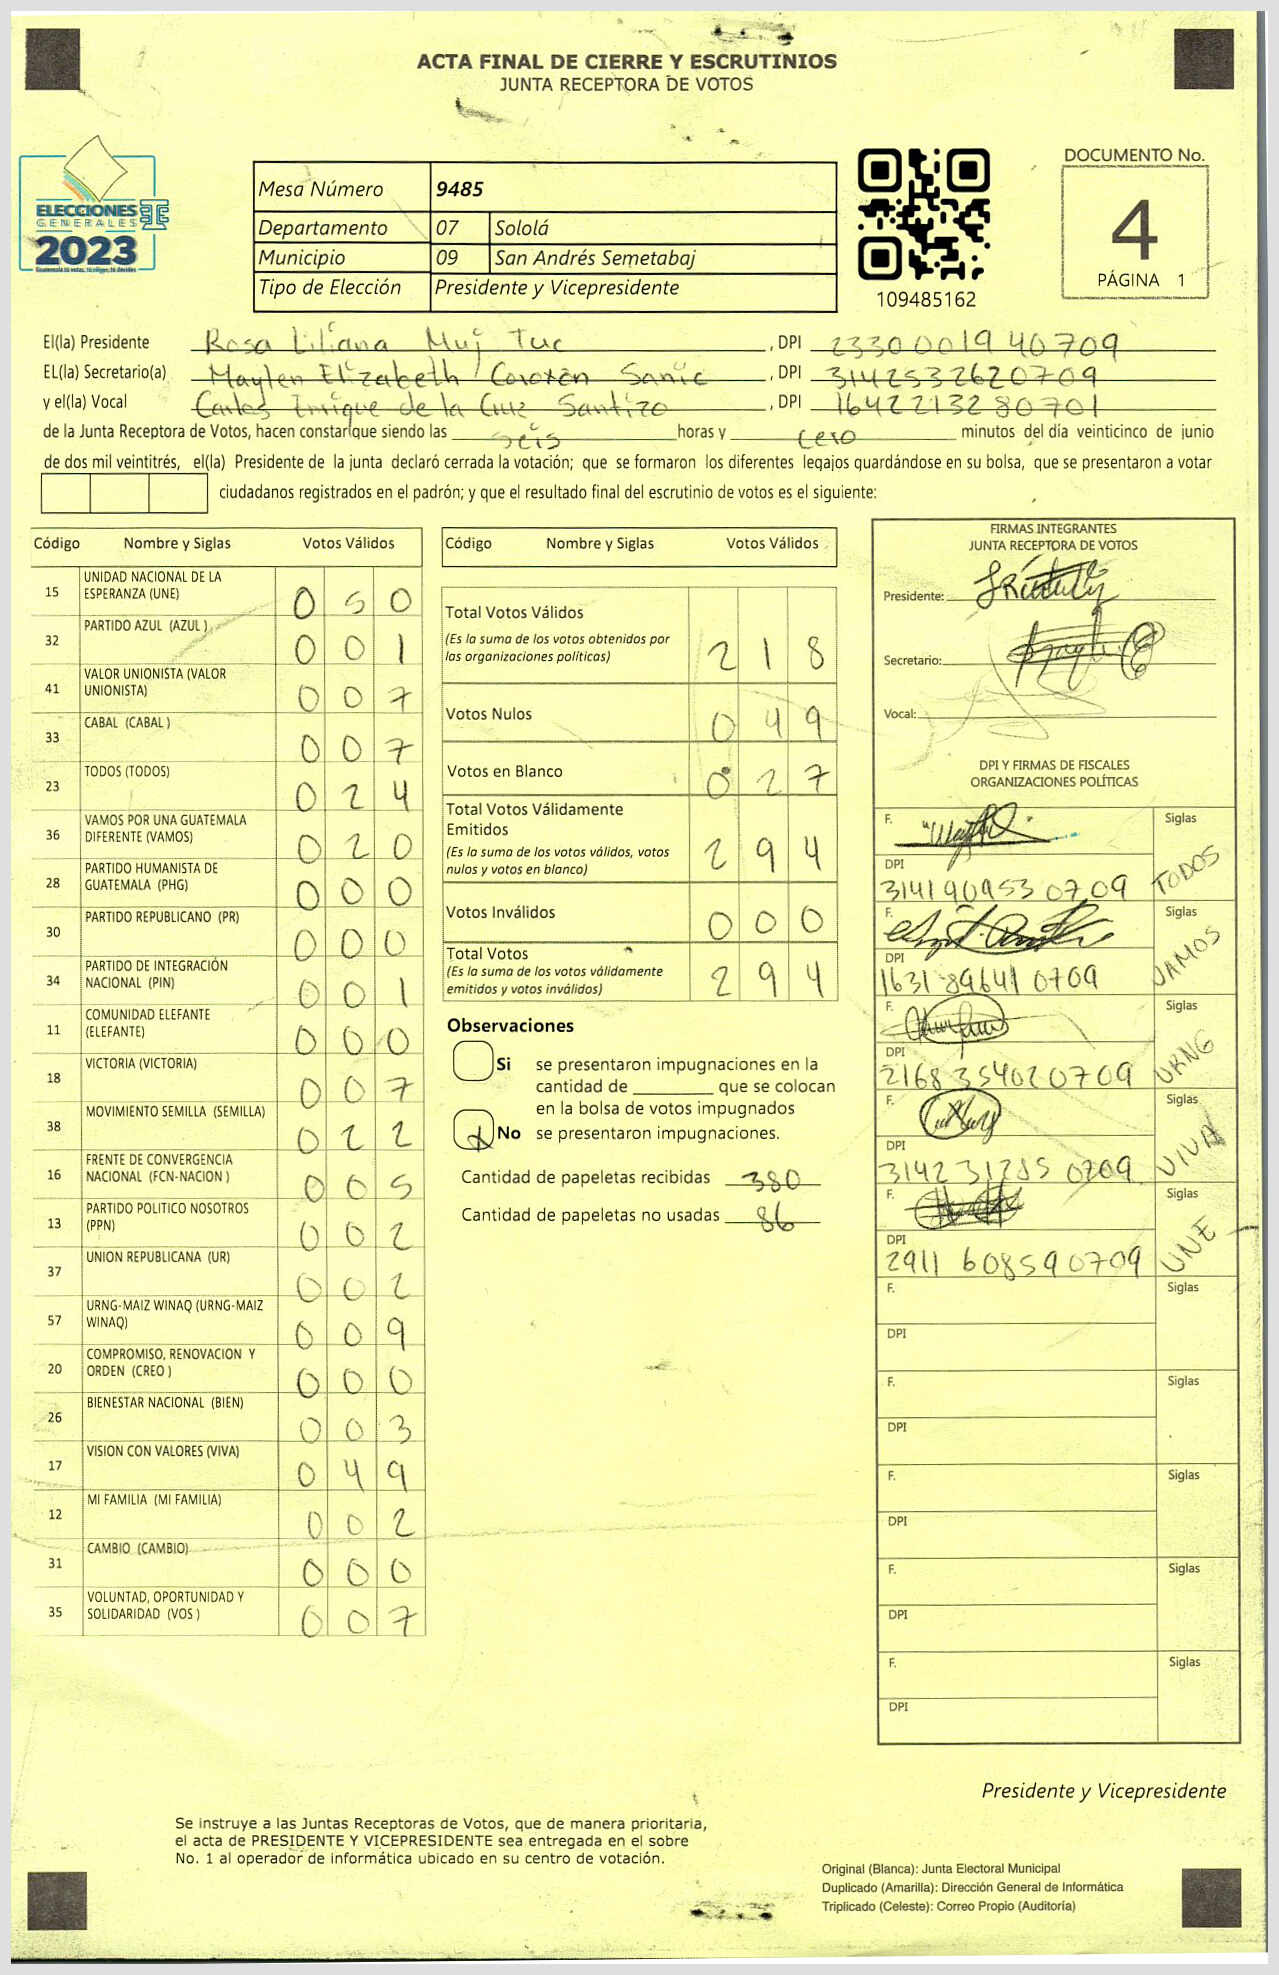 ACTA FINAL DE CIERRE Y ESCRUTINIOS
JUNTA RECEPTORA DE VOTOS
ELECCIONES
GENERALES
2023
Mesa Número 9485
Departamento 07 Sololá
Municipio 09 San Andrés Semetabaj
Tipo de Elección Presidente y Vicepresidente
109485162
DOCUMENTO No.
4
PÁGINA 1
El(la) Presidente Rosa Liliana Muj Tuc, DPI 2330001940709
EL(la) Secretario(a) Maylen Elizabeth Coroxón Sanic, DPI 3142532620709
y el(la) Vocal Carlos Enrique de la Cruz Santizo, DPI 1642213280701
de la Junta Receptora de Votos, hacen constar que siendo las seis horas y cero minutos del día veinticinco de junio
de dos mil veintitrés, el(la) Presidente de la junta declaró cerrada la votación; que se formaron los diferentes legajos guardándose en su bolsa, que se presentaron a votar
ciudadanos registrados en el padrón; y que el resultado final del escrutinio de votos es el siguiente:
Código Nombre y Siglas Votos Válidos
15 UNIDAD NACIONAL DE LA ESPERANZA (UNE) 0 5 0
32 PARTIDO AZUL (AZUL ) 0 0 1
41 VALOR UNIONISTA (VALOR UNIONISTA) 0 0 7
33 CABAL (CABAL ) 0 0 7
23 TODOS (TODOS) 0 2 4
36 VAMOS POR UNA GUATEMALA DIFERENTE (VAMOS) 0 2 0
28 PARTIDO HUMANISTA DE GUATEMALA (PHG) 0 0 0
30 PARTIDO REPUBLICANO (PR) 0 0 0
34 PARTIDO DE INTEGRACIÓN NACIONAL (PIN) 0 0 1
11 COMUNIDAD ELEFANTE (ELEFANTE) 0 0 0
18 VICTORIA (VICTORIA) 0 0 7
38 MOVIMIENTO SEMILLA (SEMILLA) 0 2 2
16 FRENTE DE CONVERGENCIA NACIONAL (FCN-NACION ) 0 0 5
13 PARTIDO POLITICO NOSOTROS (PPN) 0 0 2
37 UNION REPUBLICANA (UR) 0 0 2
57 URNG-MAIZ WINAQ (URNG-MAIZ WINAQ) 0 0 9
20 COMPROMISO, RENOVACION Y ORDEN (CREO ) 0 0 0
26 BIENESTAR NACIONAL (BIEN) 0 0 3
17 VISION CON VALORES (VIVA) 0 4 9
12 MI FAMILIA (MI FAMILIA) 0 0 2
31 CAMBIO (CAMBIO) 0 0 0
35 VOLUNTAD, OPORTUNIDAD Y SOLIDARIDAD (VOS ) 0 0 7
Código Nombre y Siglas Votos Válidos
Total Votos Válidos 2 1 8
(Es la suma de los votos obtenidos por
las organizaciones políticas)
Votos Nulos 0 4 9
Votos en Blanco 0 2 7
Total Votos Válidamente
Emitidos
(Es la suma de los votos válidos, votos
nulos y votos en blanco) 2 9 4
Votos Inválidos 0 0 0
Total Votos
(Es la suma de los votos válidamente
emitidos y votos inválidos) 2 9 4
Observaciones
Si se presentaron impugnaciones en la
cantidad de ________ que se colocan
en la bolsa de votos impugnados
X No se presentaron impugnaciones.
Cantidad de papeletas recibidas 380
Cantidad de papeletas no usadas 86
FIRMAS INTEGRANTES
JUNTA RECEPTORA DE VOTOS
Presidente:
Secretario:
Vocal:
DPI Y FIRMAS DE FISCALES
ORGANIZACIONES POLÍTICAS
F. Siglas
DPI TODOS
3141909530709
F. Siglas
DPI VAMOS
1631896410709
F. Siglas
DPI URNG
2168354020709
F. Siglas
DPI VIVA
3142312850709
F. Siglas
DPI UNE
2911608590709
F. Siglas
DPI
F. Siglas
DPI
F. Siglas
DPI
F. Siglas
DPI
F. Siglas
DPI
Presidente y Vicepresidente
Se instruye a las Juntas Receptoras de Votos, que de manera prioritaria,
el acta de PRESIDENTE Y VICEPRESIDENTE sea entregada en el sobre
No. 1 al operador de informática ubicado en su centro de votación.
Original (Blanca): Junta Electoral Municipal
Duplicado (Amarilla): Dirección General de Informática
Triplicado (Celeste): Correo Propio (Auditoría)